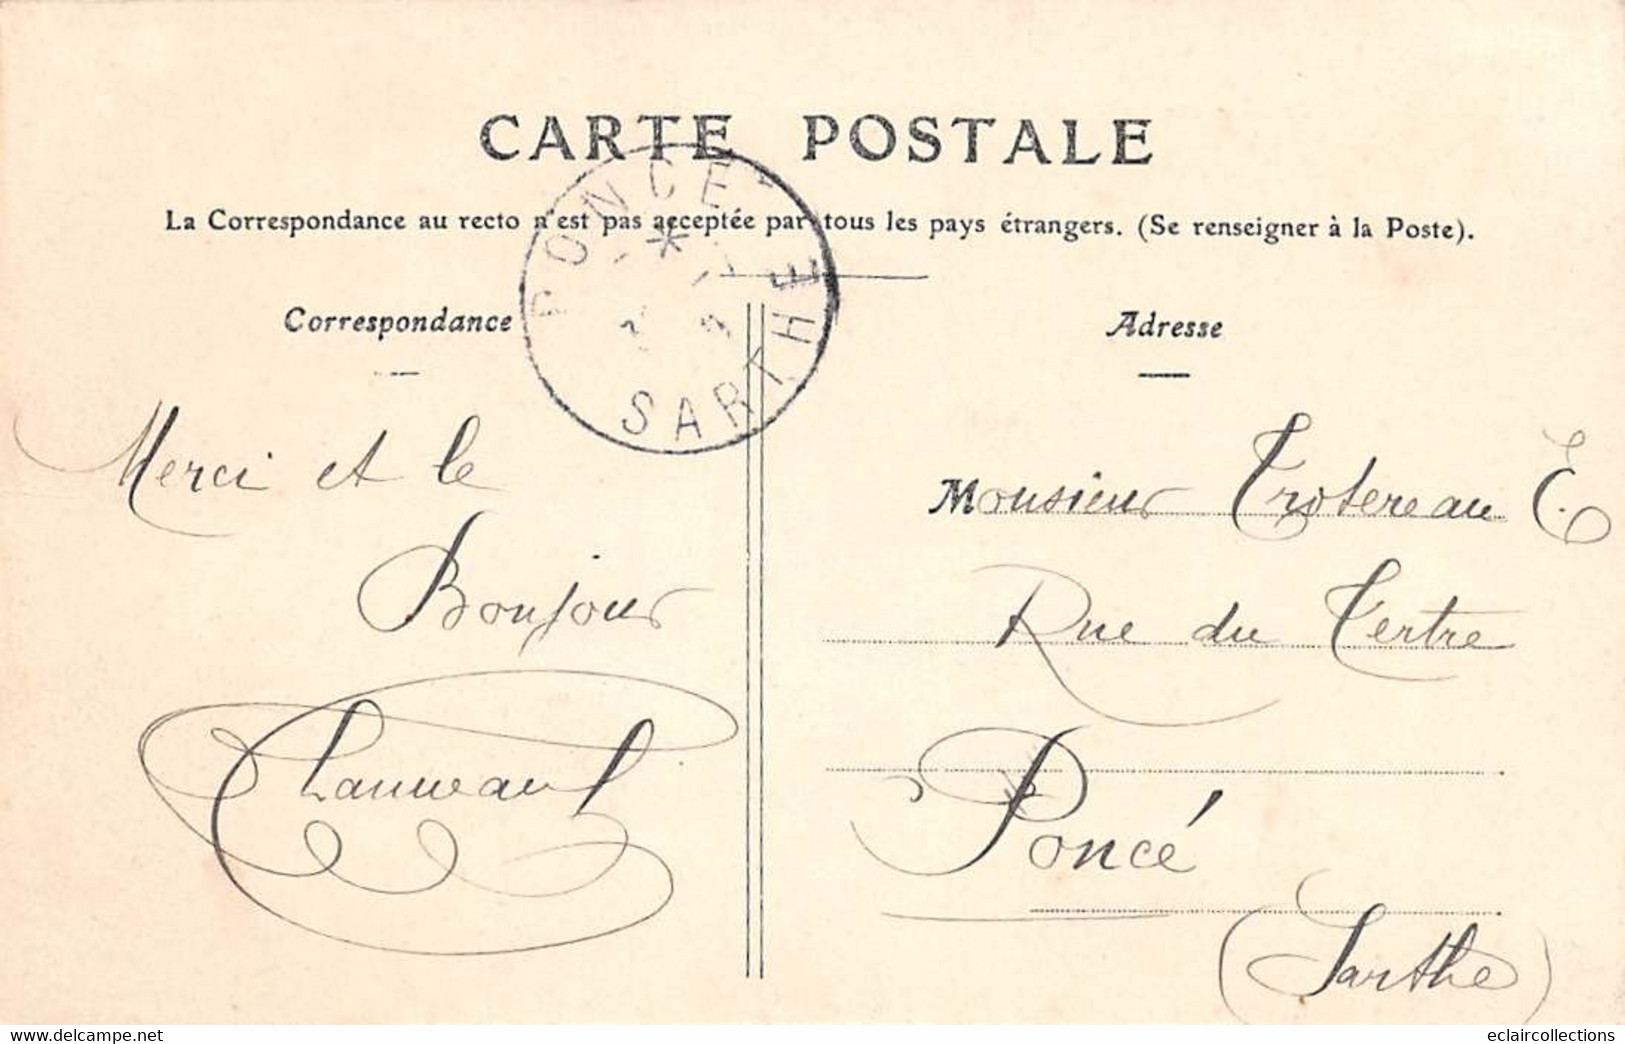 CARTE POSTALE
La Correspondance au recto n'est pas acceptée par tous les pays étrangers. (Se renseigner à la Poste).
PONCÉ
SARTHE
Correspondance
Merci et le
Bonjour
Chauveau
Adresse
Monsieur Trotereau E.
Rue du Tertre
Poncé
(Sarthe)
www.delcampe.net
eclaircollections